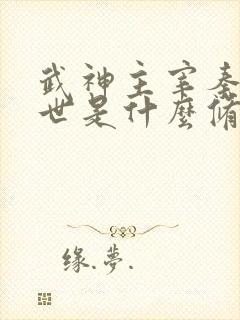 武神主宰秦
世是什麼脩
缘.梦.